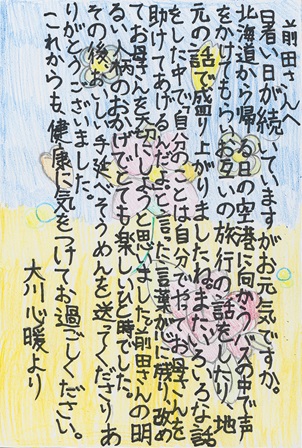 前田さんへ
暑い日が続いていますがお元気ですか。
北海道から帰る日の空港に向かうバスの中で声
をかけてもらいお互いの旅行の話をしたり、地
元の話で盛り上がりましたね。またいろいろな話
をした中で「自分のことは自分でやってお母さんを
助けてあげるんだよ」と言った言葉が心に残り、改め
てお母さんを大切にしようと思いました。前田さんの明
るい人柄のおかげでとても楽しいひと時でした。
その後おいしい手延べそうめんを送ってくださりあ
りがとうございました。
これからも健康に気をつけてお過ごしください。
大川心暖より